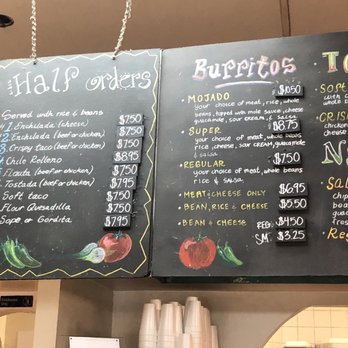 Half orders
Served with rice & beans
1 Enchilada $7.50
2 Enchiladas (beef or chicken) $7.50
3 Crispy taco (beef or chicken) $7.50
4 Chile Relleno $8.95
Flauta (beef or chicken) $7.50
Tostada (beef or chicken) $7.95
Soft taco $7.50
Flour Quesadilla $7.50
Sope or Gordita $7.95
Burritos
• MOJADO $10.50
your choice of meat, rice, whole
beans, topped with mild sauce, cheese,
guacamole, sour cream, & salsa
• SUPER $8.75
your choice of meat, whole beans
rice, cheese, sour cream, guacamole
& salsa
• REGULAR $7.50
your choice of meat, whole beans,
rice & salsa
• MEAT & CHEESE ONLY $6.95
• BEAN, RICE & CHEESE $5.50
• BEAN & CHEESE REG. $4.50
SM. $3.25